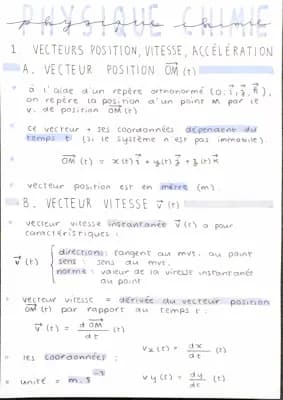 PHYSIQUE CHIMIE
physique chimie
1 VECTEURS POSITION, VITESSE, ACCÉLÉRATION
A. VECTEUR POSITION OM⃗ (t)
à l'aide d'un repère orthonormé (O; i⃗, j⃗, k⃗),
on repère la position d'un point M par le
v. de position OM⃗ (t)
ce vecteur + ses coordonnées dépendent du
temps t (si le système n'est pas immobile).
OM⃗ (t) = x(t) i⃗ + y(t) j⃗ + z(t) k⃗
vecteur position est en mètre (m).
B. VECTEUR VITESSE v⃗ (t)
vecteur vitesse instantanée v⃗ (t) a pour
caractéristiques :
direction : tangent au mvt. au point
v⃗ (t) sens : sens du mvt.
norme : valeur de la vitesse instantanée
au point
vecteur vitesse = dérivée du vecteur position
OM⃗ (t) par rapport au temps t :
v⃗ (t) = dOM⃗/dt (t)
les coordonnées : vx(t) = dx/dt (t)
unité = m.s⁻¹ vy(t) = dy/dt (t)